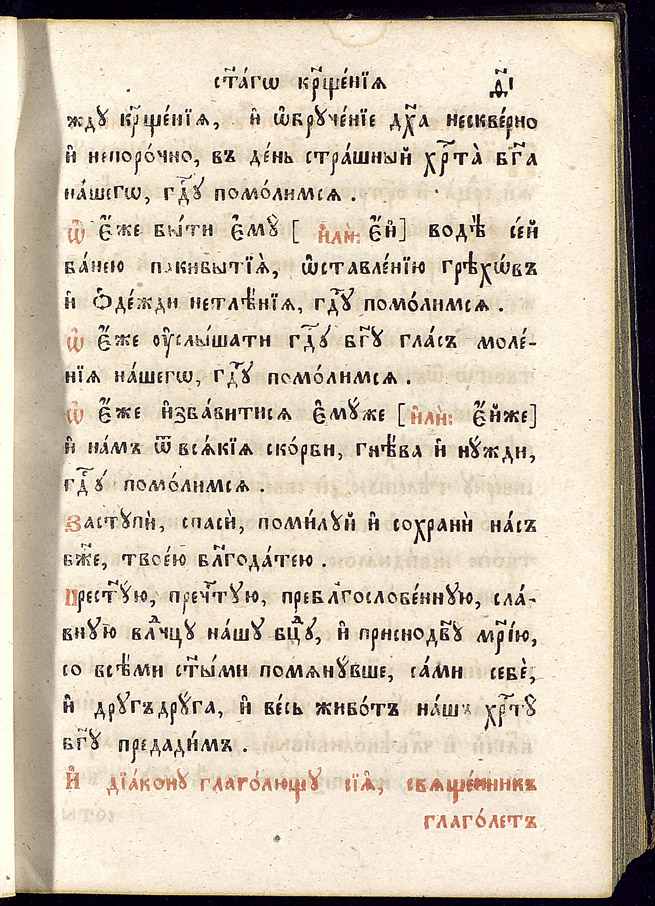 ст҃а́гѡ крⷭ҇ще́нїѧ д҃і
жду крⷭ҇ще́нїѧ, и҆ ѡ҆бруче́нїе дх҃а нескве́рно
и҆ непоро́чно, въ де́нь стра́шный хрⷭ҇та̀ бг҃а
на́шегѡ, гдⷭ҇ꙋ помо́лимсѧ.
Ѡ҆ є҆́же бы́ти є҆мꙋ̀ [и҆лѝ: є҆́й] водѣ̀ се́й
ба́нею пакибытїѧ̀, ѡ҆ставле́нїю грѣхѡ́въ
и҆ ѻ҆де́жди нетлѣ́нїѧ, гдⷭ҇ꙋ помо́лимсѧ.
Ѡ҆ є҆́же ᲂу҆слы́шати гдⷭ҇ꙋ бг҃ꙋ гла́съ моле́-
нїѧ на́шегѡ, гдⷭ҇ꙋ помо́лимсѧ.
Ѡ҆ є҆́же и҆зба́витисѧ є҆мꙋ́же [и҆лѝ: є҆́йже]
и҆ на́мъ ѿ всѧ́кїѧ ско́рби, гнѣ́ва и҆ нꙋ́жди,
гдⷭ҇ꙋ помо́лимсѧ.
Застꙋпѝ, спасѝ, поми́лꙋй и҆ сохранѝ на́съ
бж҃е, твое́ю блг҃ода́тею.
Прест҃ꙋ́ю, пречⷭ҇тꙋю, пребл҃гослове́ннꙋю, сла́-
внꙋю влⷣчцꙋ на́шꙋ бцⷣꙋ, и҆ приснодв҃ꙋ мр҃і́ю,
со всѣ́ми ст҃ы́ми помѧнꙋ́вше, са́ми себѐ,
и҆ дрꙋ́гъдрꙋ́га, и҆ ве́сь живо́тъ на́шъ хрⷭ҇тꙋ̀
бг҃ꙋ предади́мъ.
И҆ дїа́конꙋ глаго́лющꙋ сїѧ̑, свѧще́нникъ
глаго́летъ